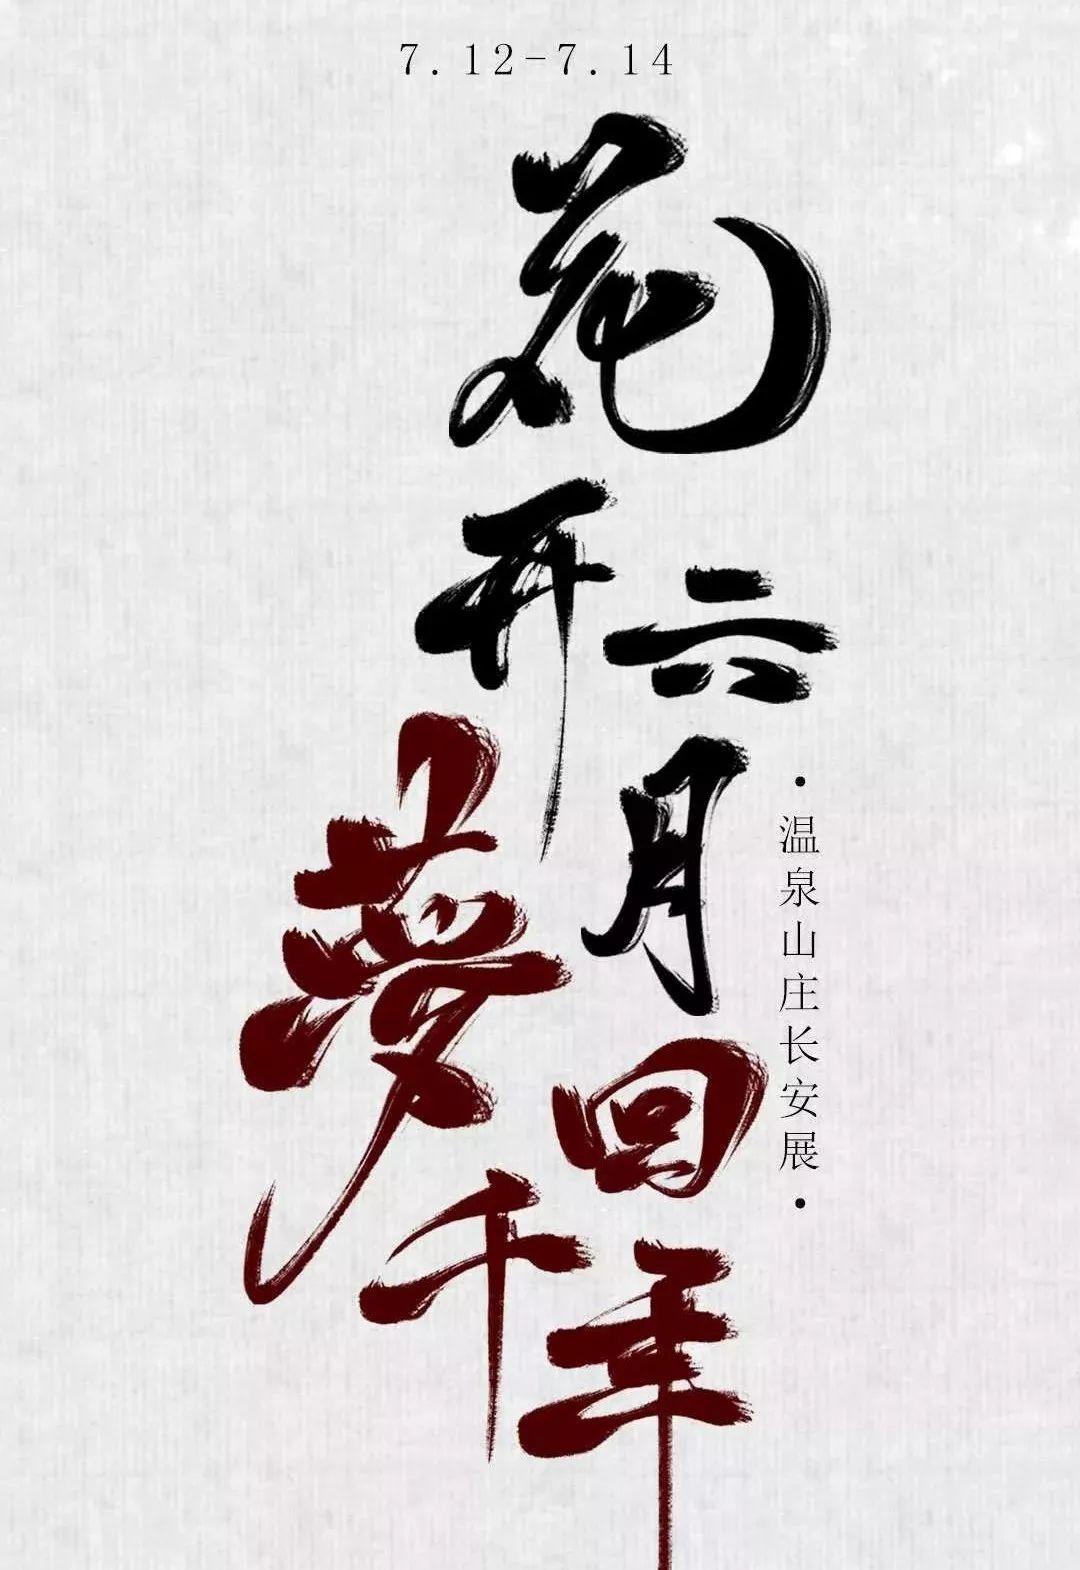 7.12-7.14
花开六月
夢回千年
·温泉山庄长安展·